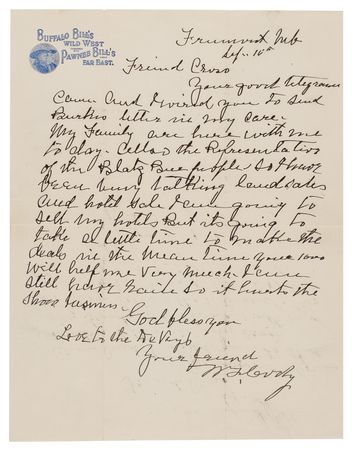 BUFFALO BILL'S
WILD WEST
PAWNEE BILL'S
FAR EAST.
Fremont Neb
Sep. 16th
Freind Cross
Your good telegram
came and I wired you to send
Burkes letter in my care.
My Family are here with me
to day. Cellas the Representative
of the people so I have
been busy talking land sales
and hotel sale I am going to
sell my hotels But its going to
take a little time to make the
deals in the mean time your
will help me very much. I am
still have rain so it hurts the
Show business
God bless you
Love to the
Your friend
W.F. Cody